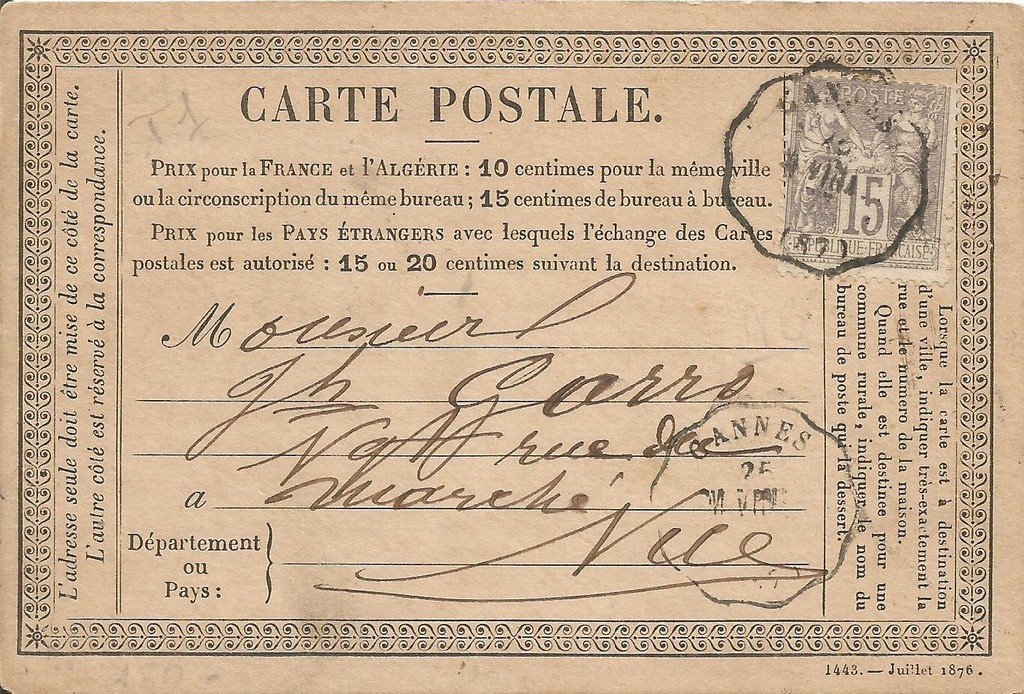 CARTE POSTALE.
PRIX pour la FRANCE et l'ALGÉRIE : 10 centimes pour la même ville
ou la circonscription du même bureau ; 15 centimes de bureau à bureau.
PRIX pour les PAYS ÉTRANGERS avec lesquels l'échange des Cartes
postales est autorisé : 15 ou 20 centimes suivant la destination.
L'adresse seule doit être mise de ce côté de la carte.
L'autre côté est réservé à la correspondance.
POSTE
15
RÉPUBLIQUE-FRANÇAISE
Monsieur
Jh Garro
rue du
a marché
Nice
Département
ou
Pays :
CANNES
25
Lorsque la carte est à destination
d'une ville, indiquer très-exactement la
rue et le numero de la maison.
Quand elle est destinée pour une
commune rurale, indiquer le nom du
bureau de poste qui la dessert.
1443. — Juillet 1876.